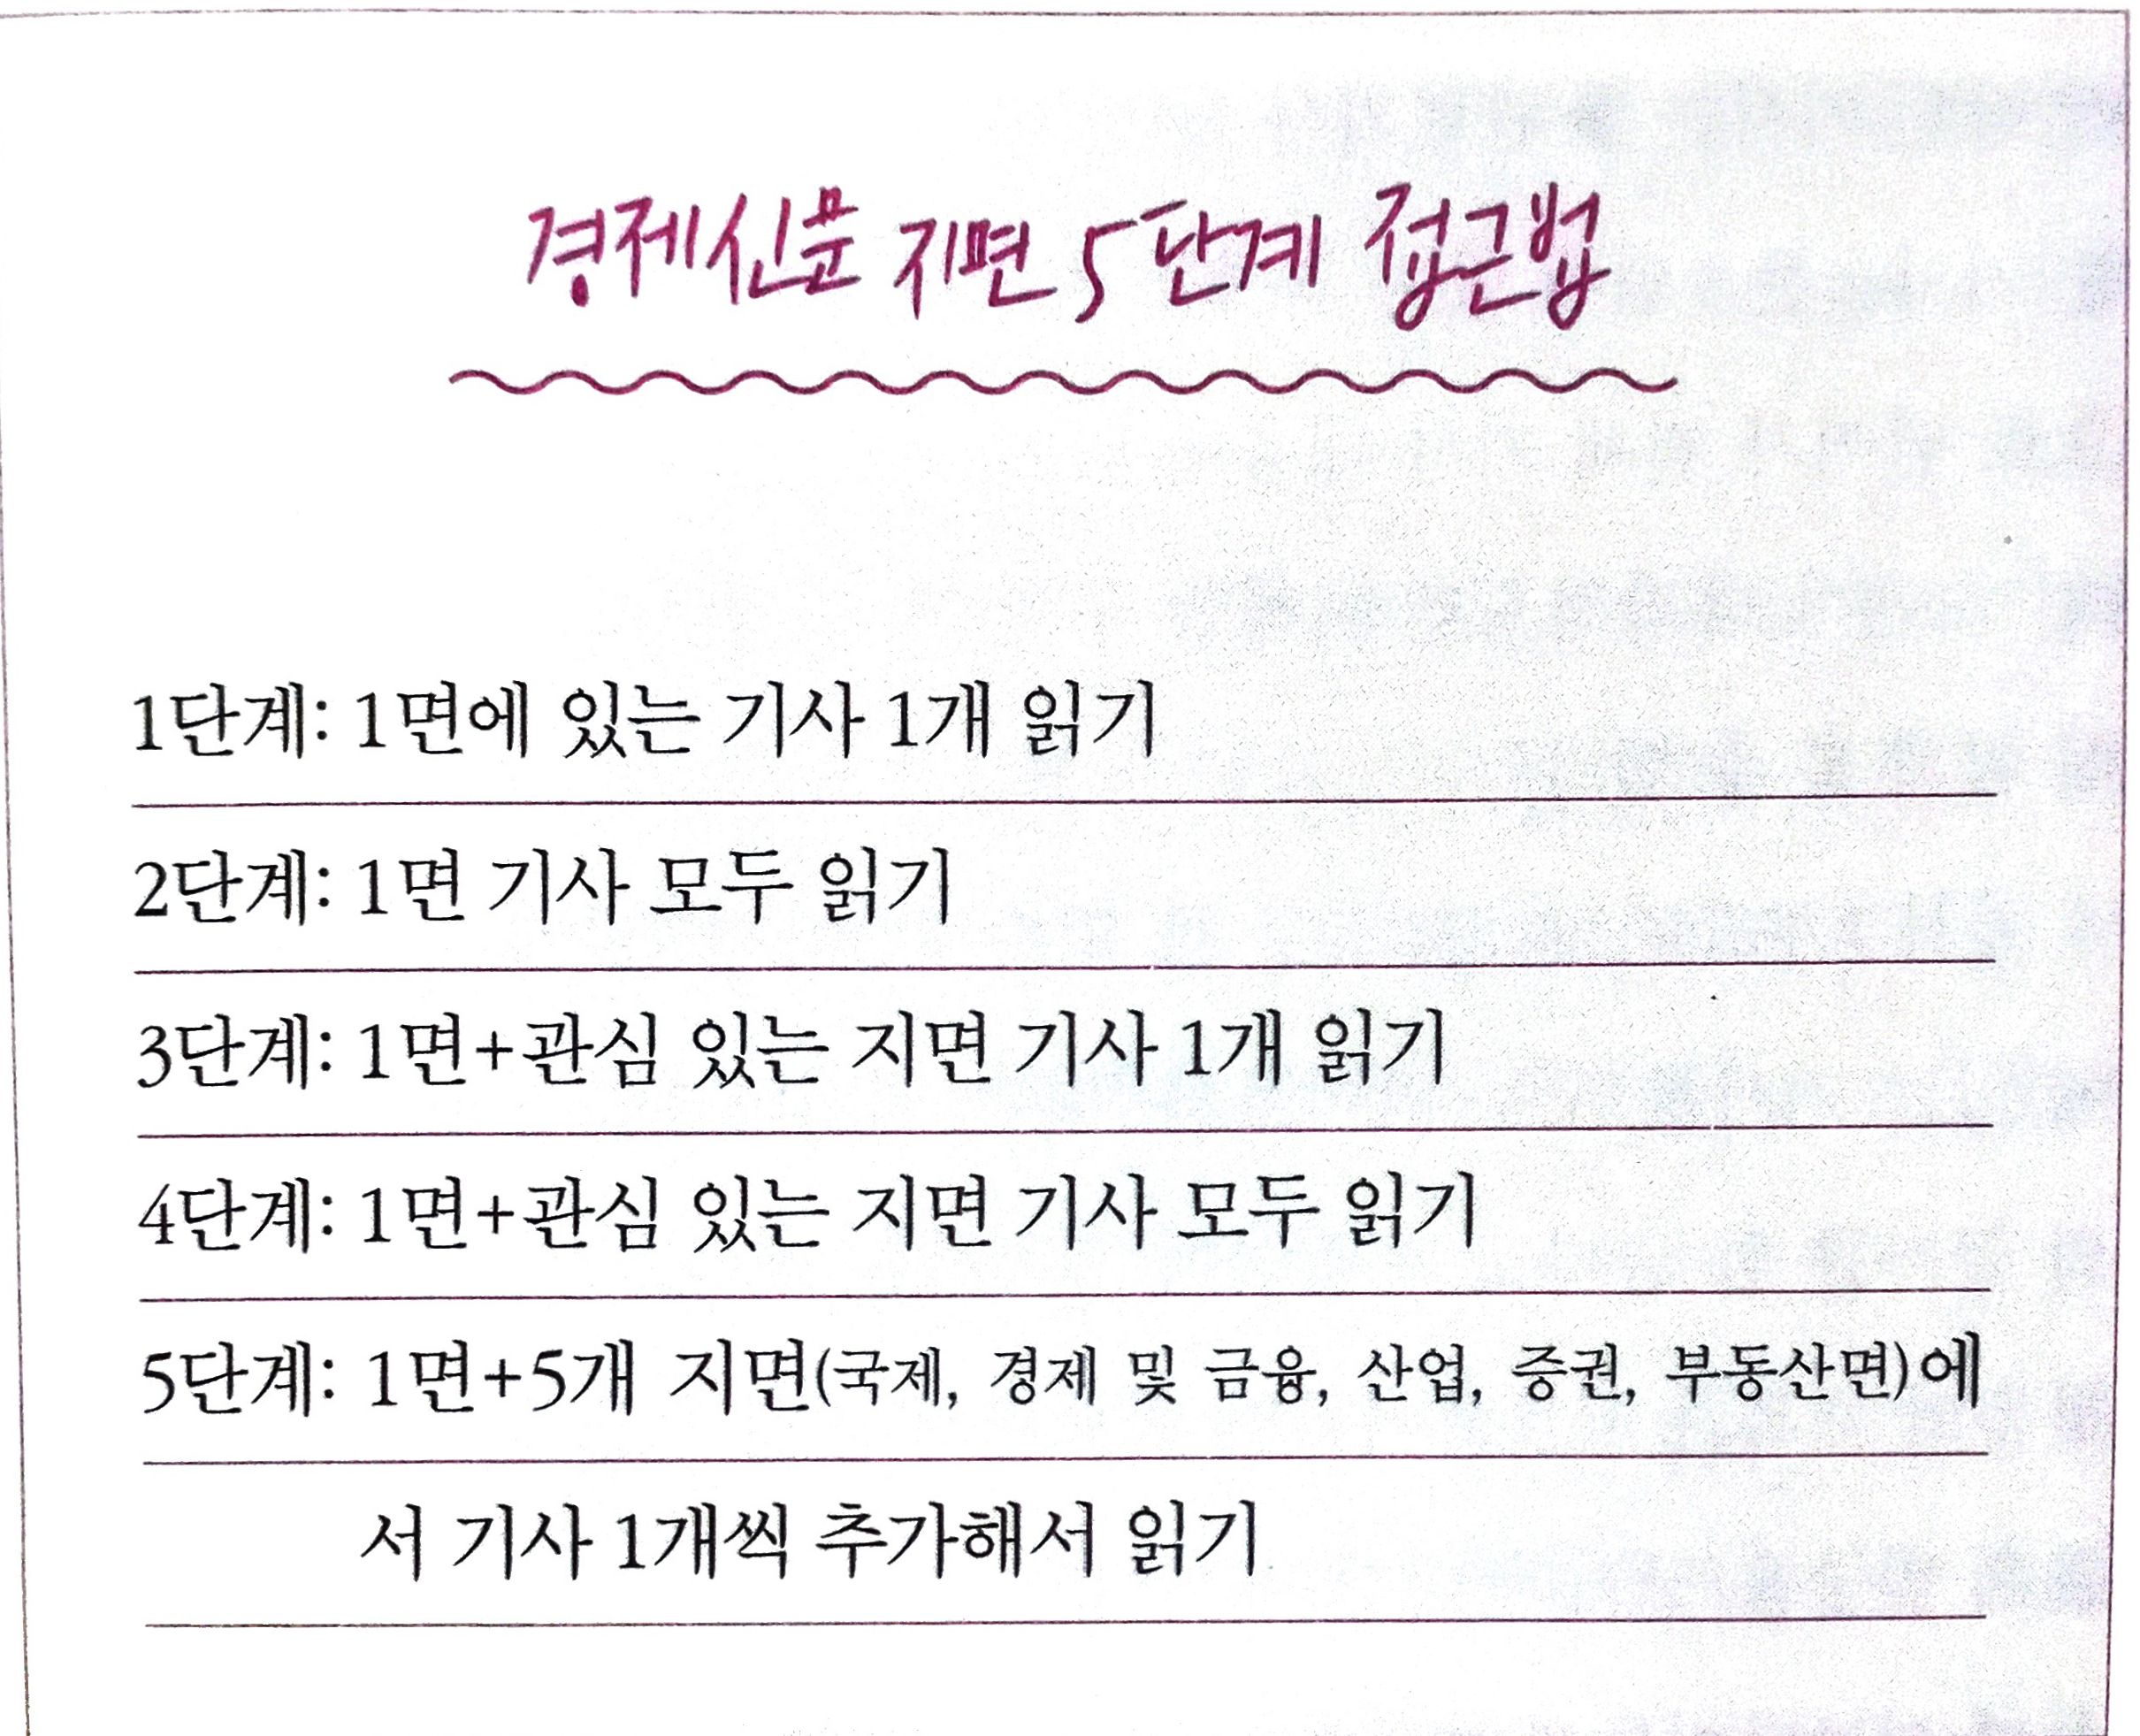 경제신문 지면 5단계 접근법
1단계: 1면에 있는 기사 1개 읽기
2단계: 1면 기사 모두 읽기
3단계: 1면+관심 있는 지면 기사 1개 읽기
4단계: 1면+관심 있는 지면 기사 모두 읽기
5단계: 1면+5개 지면(국제, 경제 및 금융, 산업, 증권, 부동산면)에
서 기사 1개씩 추가해서 읽기